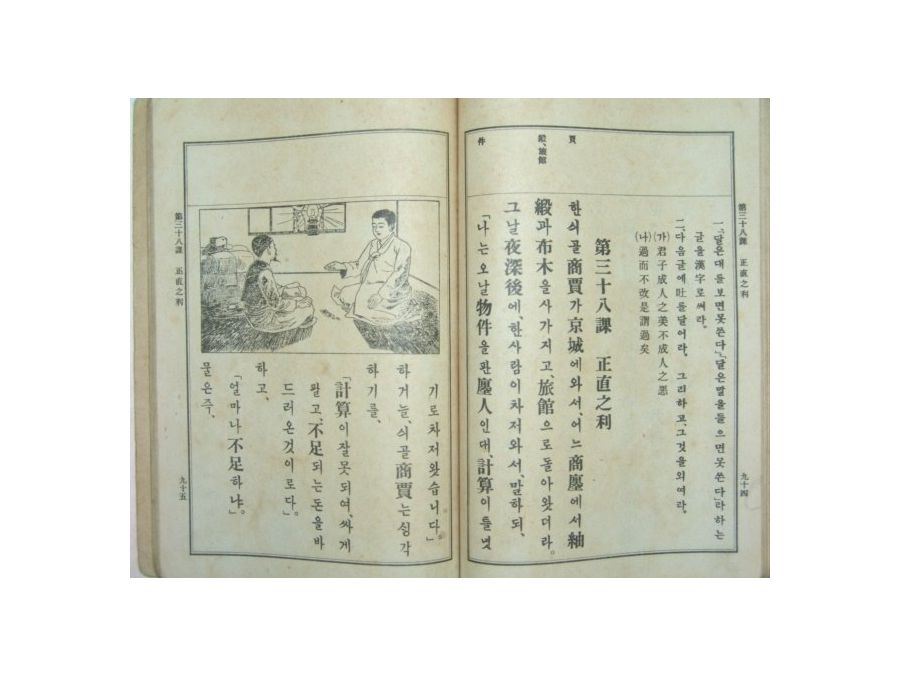 第三十八課 正直之利
九十四
一、「달은대를보면못쓴다」「달은말을들으면못쓴다」라하는
글을漢字로써라。
二、다음글에吐를달어라。그리하고、그것을외여라。
(가)君子成人之美不成人之惡
(나)過而不改是謂過矣
第三十八課 正直之利
賈
한싀골商賈가京城에와서、어느商廛에서紬
緞、旅館
緞과布木을사가지고、旅館으로돌아왓더라。
그날夜深後에、한사람이차저와서、말하되、
件
「나는오날物件을판廛人인대、計算이틀녓
기로차저왓습니다。」
하거늘、싀골商賈는싱각
하기를、
「計算이잘못되여、싸게
팔고、不足되는돈을바
드러온것이로다。」
하고、
「얼마나不足하냐。」
물은즉、
第三十八課 正直之利
九十五